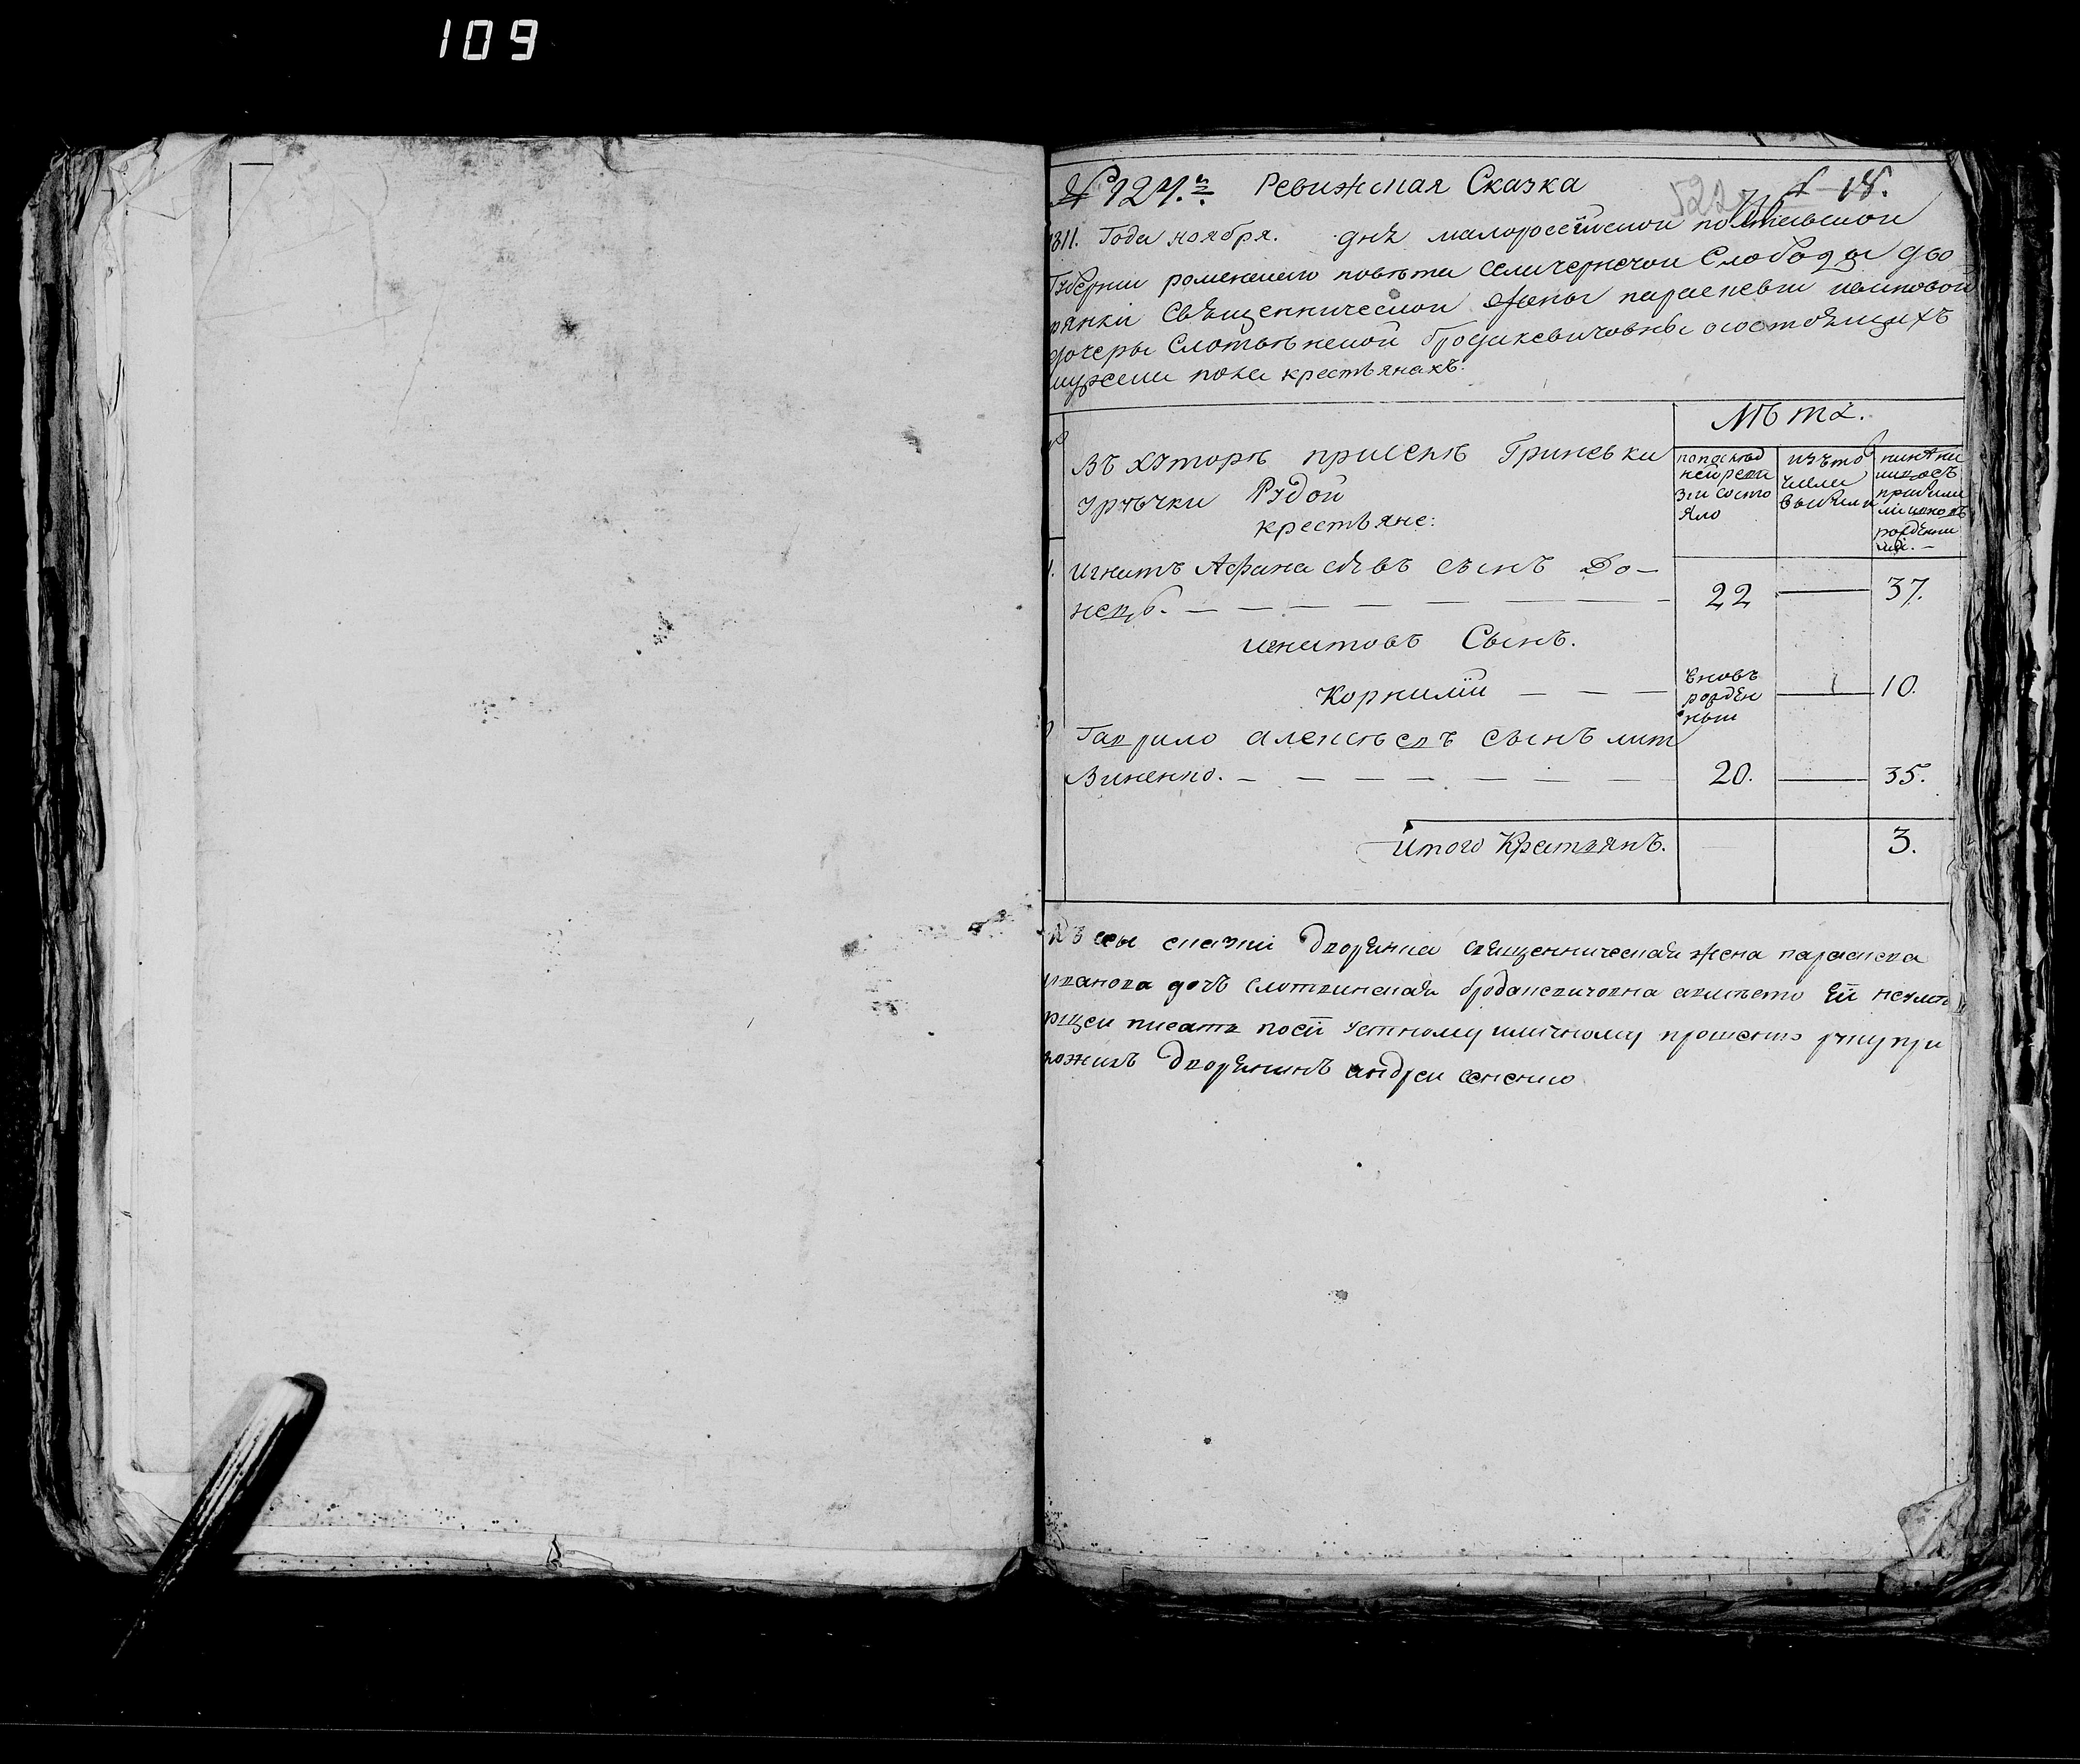 109
№ 124. Ревижская Сказка
522
1811. Года ноября. днѧ малоросейской полтавской
Губернии роменского повѣта села чернечои Слободы дво
рянки Свѣщеннической жены параскевы ивановой
дочеры Слотвѣнской бродакевичовны осостоѣщихъ
мужеска пола крестьянахъ:
Лѣта.
Въ хуторѣ присекѣ Гриневки
урѣчки Рудой
крестьяне:
попослѣд
ней реви
зіи состо
яло
изъ то
числа
выбыли
1. игнатъ Афанасѣвъ сынъ До-
нецъ. 22 37.
игнатовъ Сынъ.
Корнилій
вновь
рожден
ный
10.
Гаврило алексѣевъ сынъ лит
виненко. 20. 35.
итого Крестьянъ. 3.
Къ сеи сказки дворянка священническая жена параскева
иванова дочь слотвинская бродакевичовна авместо ей неумѣ
ющеи писать поеи устному иличному прошению руку при
ложилъ дворянинъ андреи